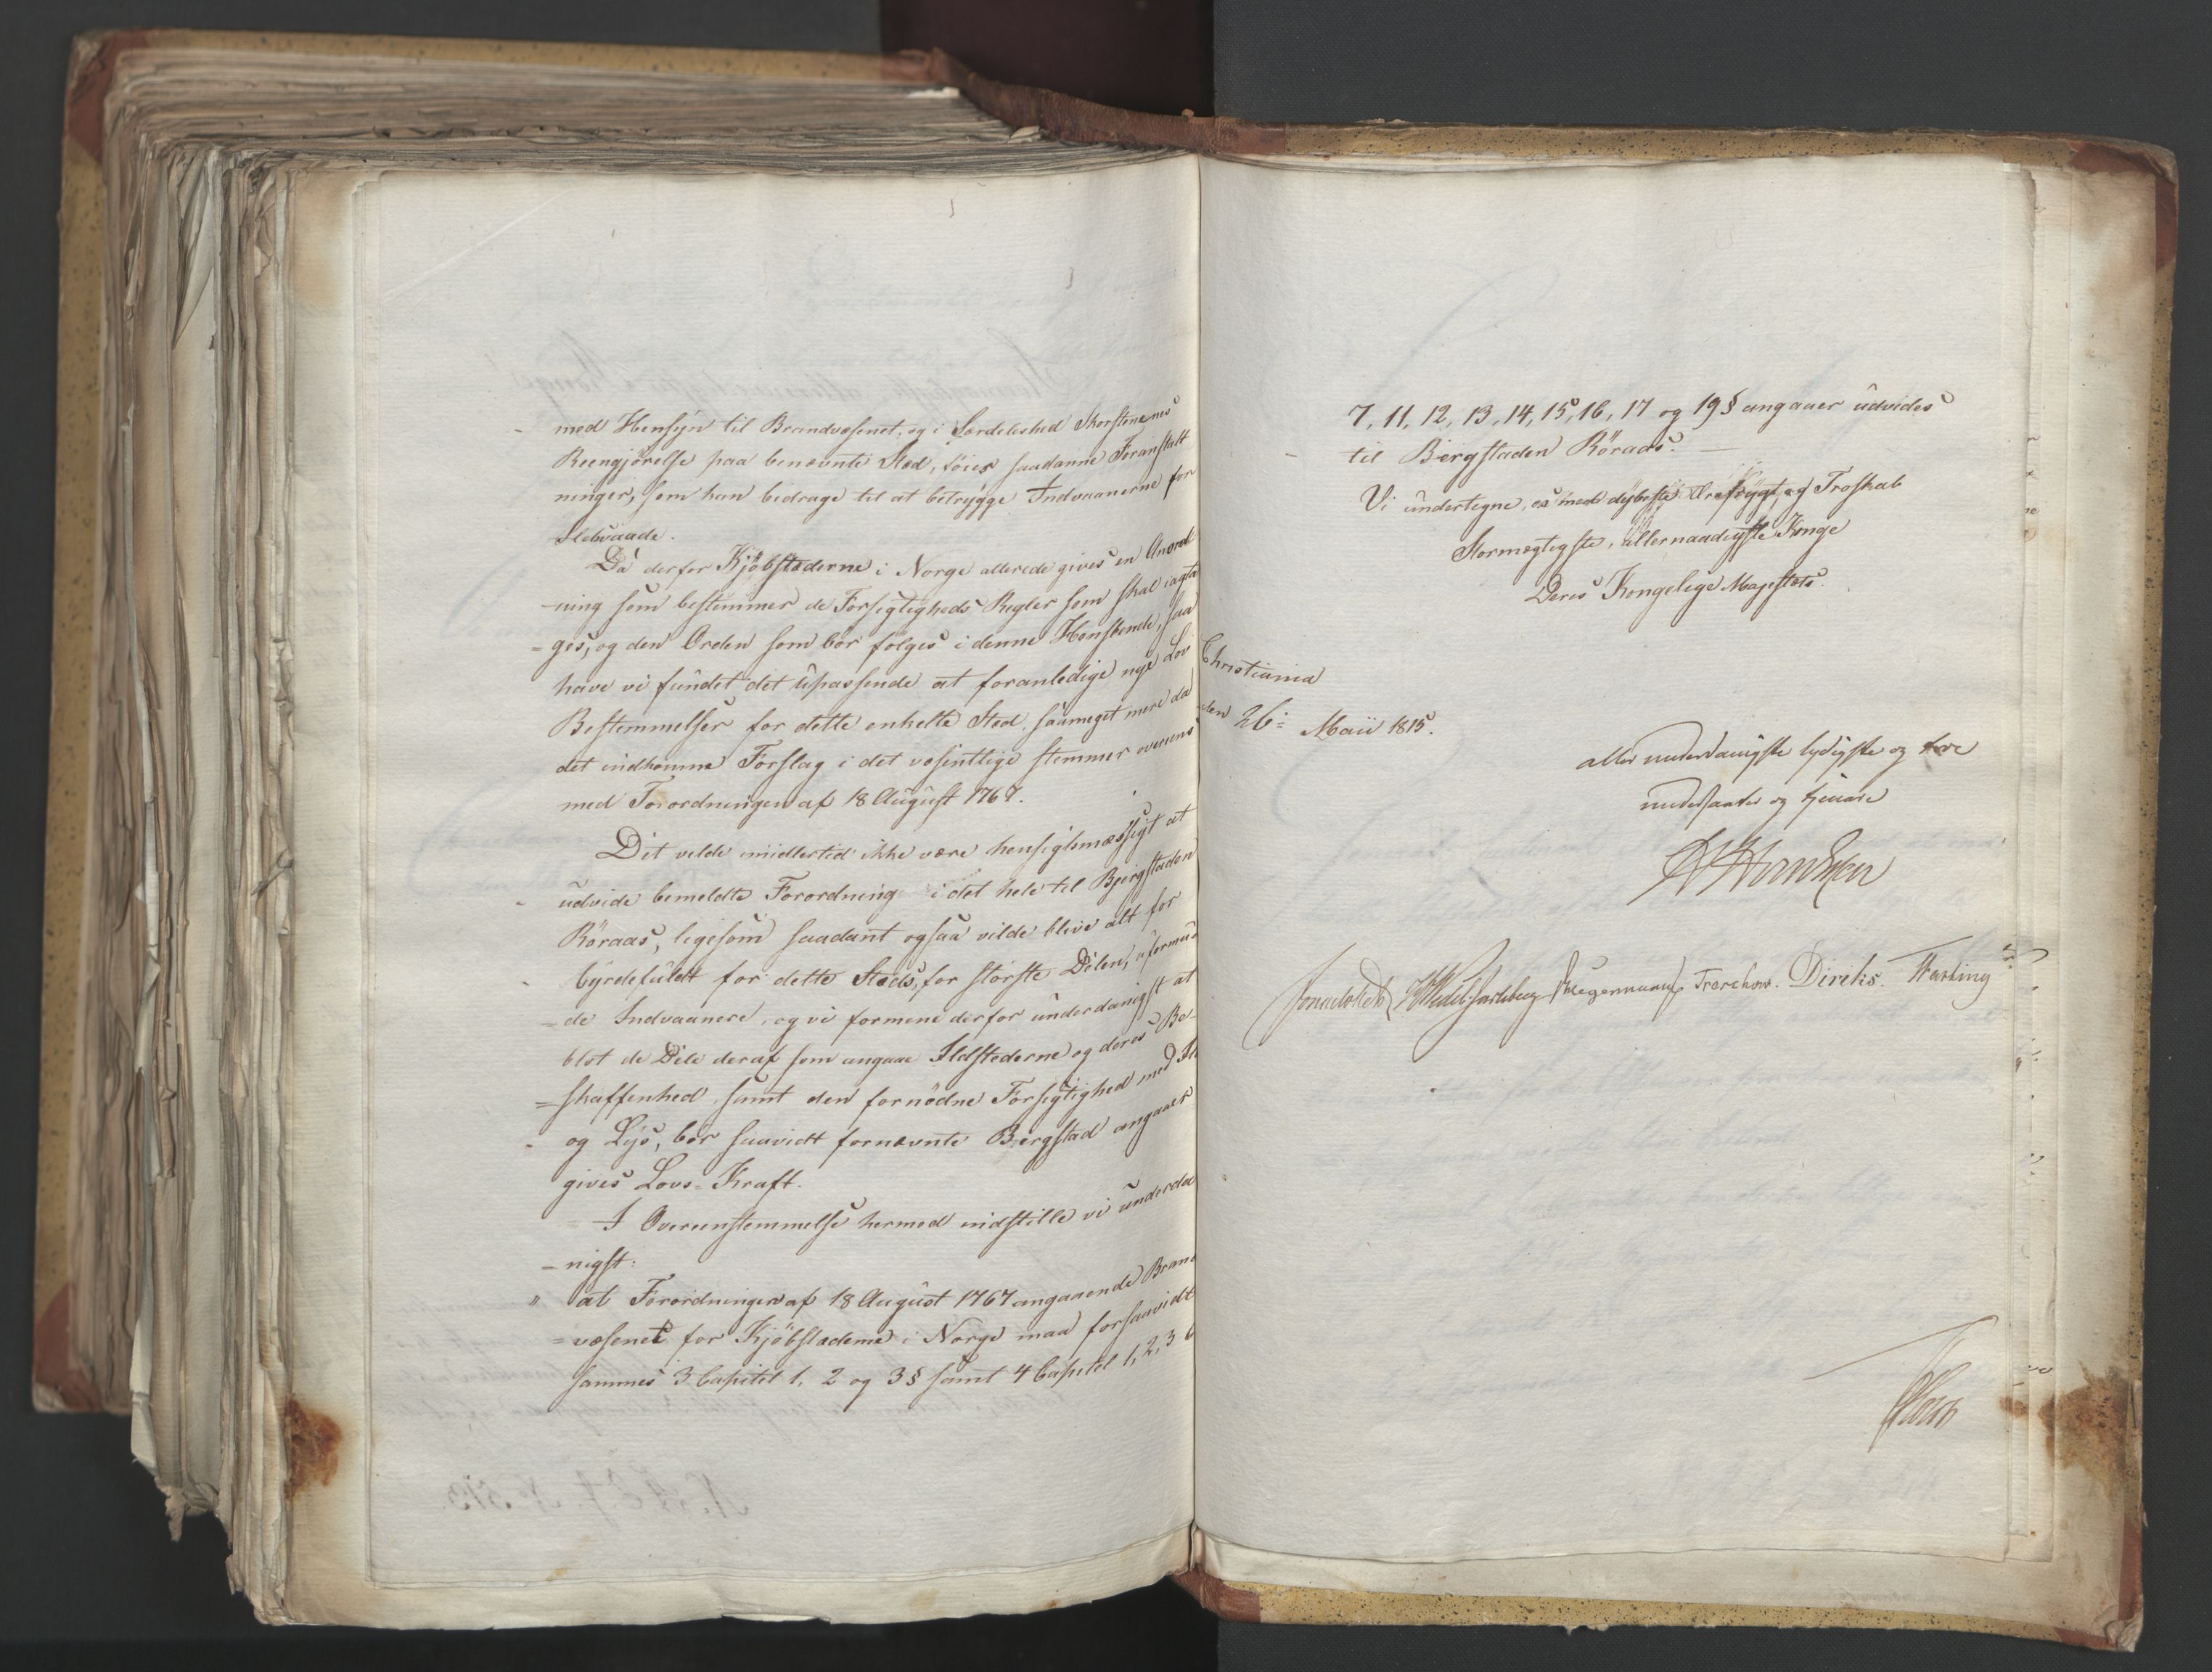 med Hensyn til Brandvæsenet, og i Særdeleshed Skorstenenes
Reengjørelse paa benævnte Sted, føies saadanne Foranstalt
ninger, som kan bidrage til at betrygge Indvaanerne for
Ildsvaade.
Da derfor Kjöbstæderne i Norge allerede gives en Anord
-ning som bestemmer de Forsigtigheds Regler som skal iagta
=ges, og den Orden som bör fölges i denne Henseende, saa
have vi fundet det upassende at foranledige nye Lov
Bestemmelser for dette enkelte Sted, saameget mere da
det indkomne Forslag i det væsentlige stemmer overens
med Forordningen af 18 August 1767.
Det vilde imidlertid ikke være hensigtsmæssigt at
udvide bemeldte Forordning i det hele til Bergstaden
Röraas, ligesom saadant ogsaa vilde blive alt for
byrdefuldt for dette Steds, for störste Delen, uformuen
=de Indvaanere, og vi formene derfor underdanigst at
blot de Dele deraf som angaae Ildstederne og deres Be-
=skaffenhed, samt den fornödne Forsigtighed med Ild
og Lys, bör saavidt fornævnte Bergstad angaaer
gives Lovs-Kraft.
I Overeenstemmelse hermed indstille vi underda
=nigst:
" at Forordningen af 18 August 1767 angaaende Brand
=væsenet for Kjöbstæderne i Norge maa forsaavidt
sammes 3 Capitel 1, 2 og 3 § samt 4 Capitel 1, 2, 3 6
7, 11, 12, 13, 14, 15, 16, 17 og 19 § angaaer udvides
til Bergstaden Röraas. —
Vi undertegne os med dybeste Ærefrygt og Troskab
Stormægtigste, allernaadigste Konge
Deres Kongelige Majestæts
Christiania
den 26= Maii 1815.
allerunderdanigste lydigste og troe
undersaatter og tjenere
Sommerhielm Wedel Jarlsberg Hegermann Treschow. Diriks. Fasting